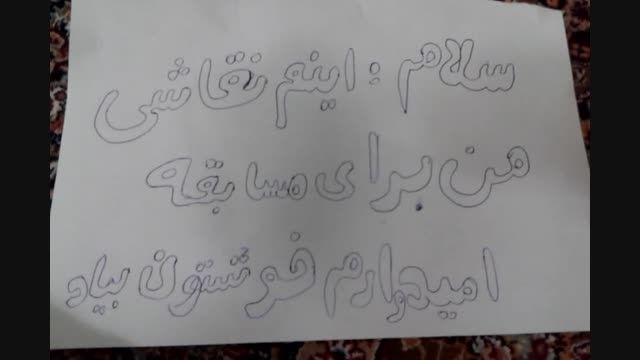 سلام : اینم نقاشی
من برای مسابقه
امیدوارم خوشتون بیاد